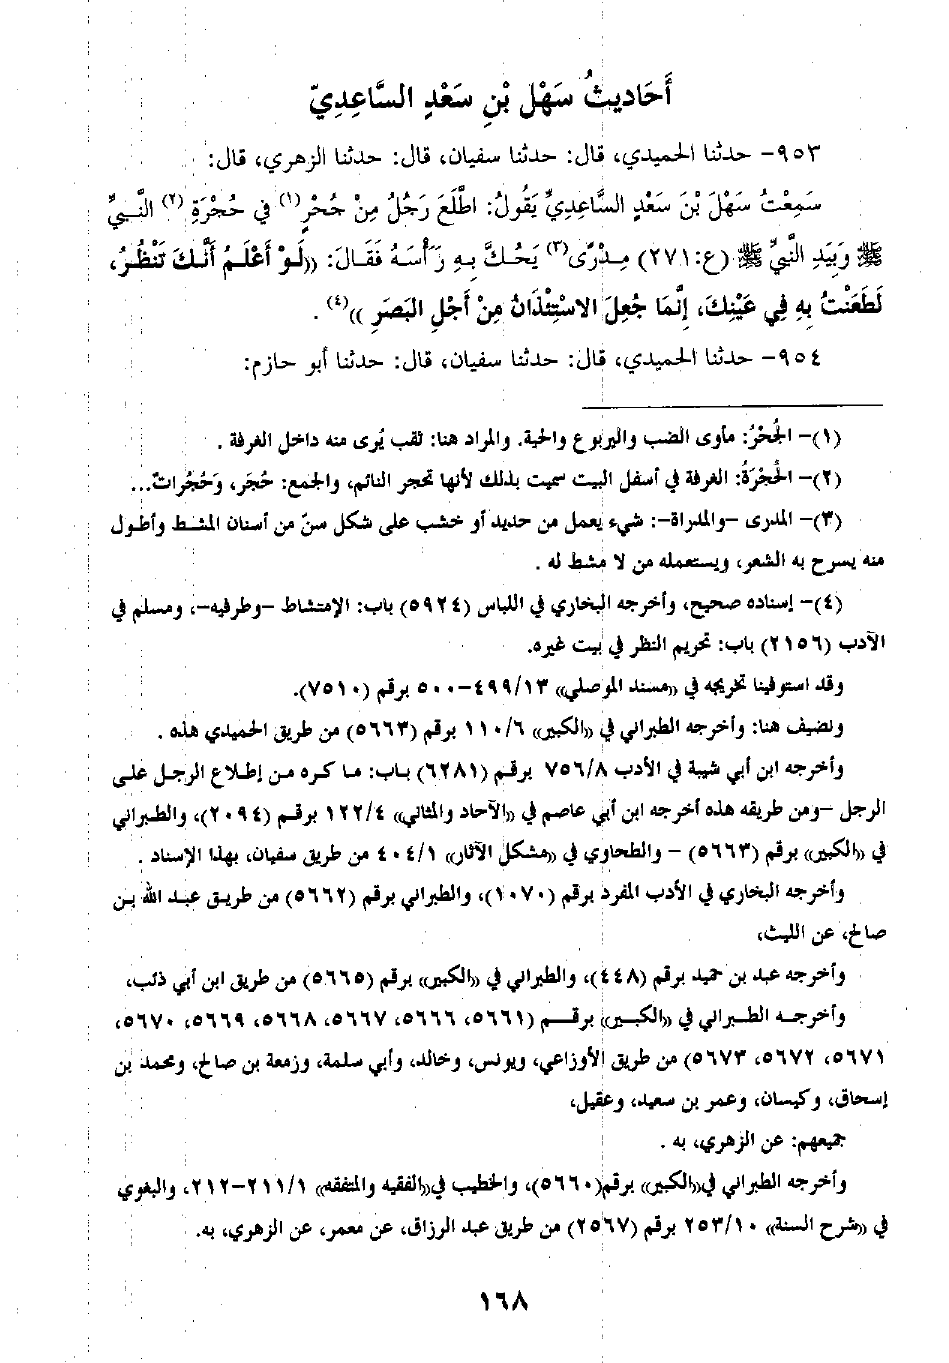 أَحَاديثُ سَهْلِ بْنِ سَعْدٍ السَّاعِدِيّ
٩٥٣- حدثنا الحميدي، قال: حدثنا سفيان، قال: حدثنا الزهري، قال:
سَمِعْتُ سَهْلَ بْنَ سَعْدٍ السَّاعِدِيَّ يَقُولُ: اطَّلَعَ رَجُلٌ مِنْ جُحْرٍ(١) في حُجْرَةِ (٢) النَّبيِّ
ﷺ وَبِيَدِ النَّبيِّ ﷺ (ع:٢٧١) مِدْرًى(٣) يَحُكَّ بِهِ رَأْسَهُ فَقَالَ: ((لَوْ أَعْلَمُ أَنَّكَ تَنْظُرُ،
لَطَعَنْتُ بِهِ فِي عَيْنِكَ، إِنَّمَا جُعِلَ الاسْتِئْذَانُ مِنْ أَجْلِ البَصَرِ ))(٤) .
٩٥٤- حدثنا الحميدي، قال: حدثنا سفيان، قال: حدثنا أبو حازم:
(١)- الجُحْرُ: مأوى الضب واليربوع والحية. والمراد هنا: ثقب يُرى منه داخل الغرفة .
(٢)- الحُجْرَةُ: الغرفة في أسفل البيت سميت بذلك لأنها تحجر النائم، والجمع: حُجَر، وَحُجُراتٌ...
(٣)- المدرى -والمدراة-: شيء يعمل من حديد أو خشب على شكل سنّ من أسنان المشط وأطول
منه يسرح به الشعر، ويستعمله من لا مشط له .
(٤)- إسناده صحيح، وأخرجه البخاري في اللباس (٥٩٢٤) باب: الإمتشاط -وطرفيه-، ومسلم في
الآدب (٢١٥٦) باب: تحريم النظر في بيت غيره.
وقد استوفينا تخريجه في «مسند الموصلي» ٤٩٩/١٣-٥٠٠ برقم (٧٥١٠).
ونضيف هنا: وأخرجه الطبراني في «الكبير» ١١٠/٦ برقم (٥٦٦٣) من طريق الحميدي هذه .
وأخرجه ابن أبي شيبة في الأدب ٧٥٦/٨ برقم (٦٢٨١) باب: ما كره من إطلاع الرجل على
الرجل -ومن طريقه هذه أخرجه ابن أبي عاصم في «الآحاد والمثاني» ١٢٢/٤ برقم (٢٠٩٤)، والطبراني
في «الكبير» برقم (٥٦٦٣) - والطحاوي في «مشكل الآثار» ٤٠٤/١ من طريق سفيان، بهذا الإسناد .
وأخرجه البخاري في الأدب المفرد برقم (١٠٧٠)، والطبراني برقم (٥٦٦٢) من طريق عبد الله بن
صالح، عن الليث،
وأخرجه عبد بن حميد برقم (٤٤٨)، والطبراني في «الكبير» برقم (٥٦٦٥) من طريق ابن أبي ذئب،
وأخرجه الطبراني في «الكبير» برقم (٥٦٦١، ٥٦٦٦، ٥٦٦٧، ٥٦٦٨، ٥٦٦٩، ٥٦٧٠،
٥٦٧١، ٥٦٧٢، ٥٦٧٣) من طريق الأوزاعي، ويونس، وخالد، وأبي سلمة، وزمعة بن صالح، ومحمد بن
إسحاق، وكيسان، وعمر بن سعيد، وعقيل،
جميعهم: عن الزهري، به .
وأخرجه الطبراني في«الكبير» برقم(٥٦٦٠)، والخطيب في«الفقيه والمتفقه» ٢١١/١-٢١٢، والبغوي
في «شرح السنة» ٢٥٣/١٠ برقم (٢٥٦٧) من طريق عبد الرزاق، عن معمر، عن الزهري، به.
١٦٨